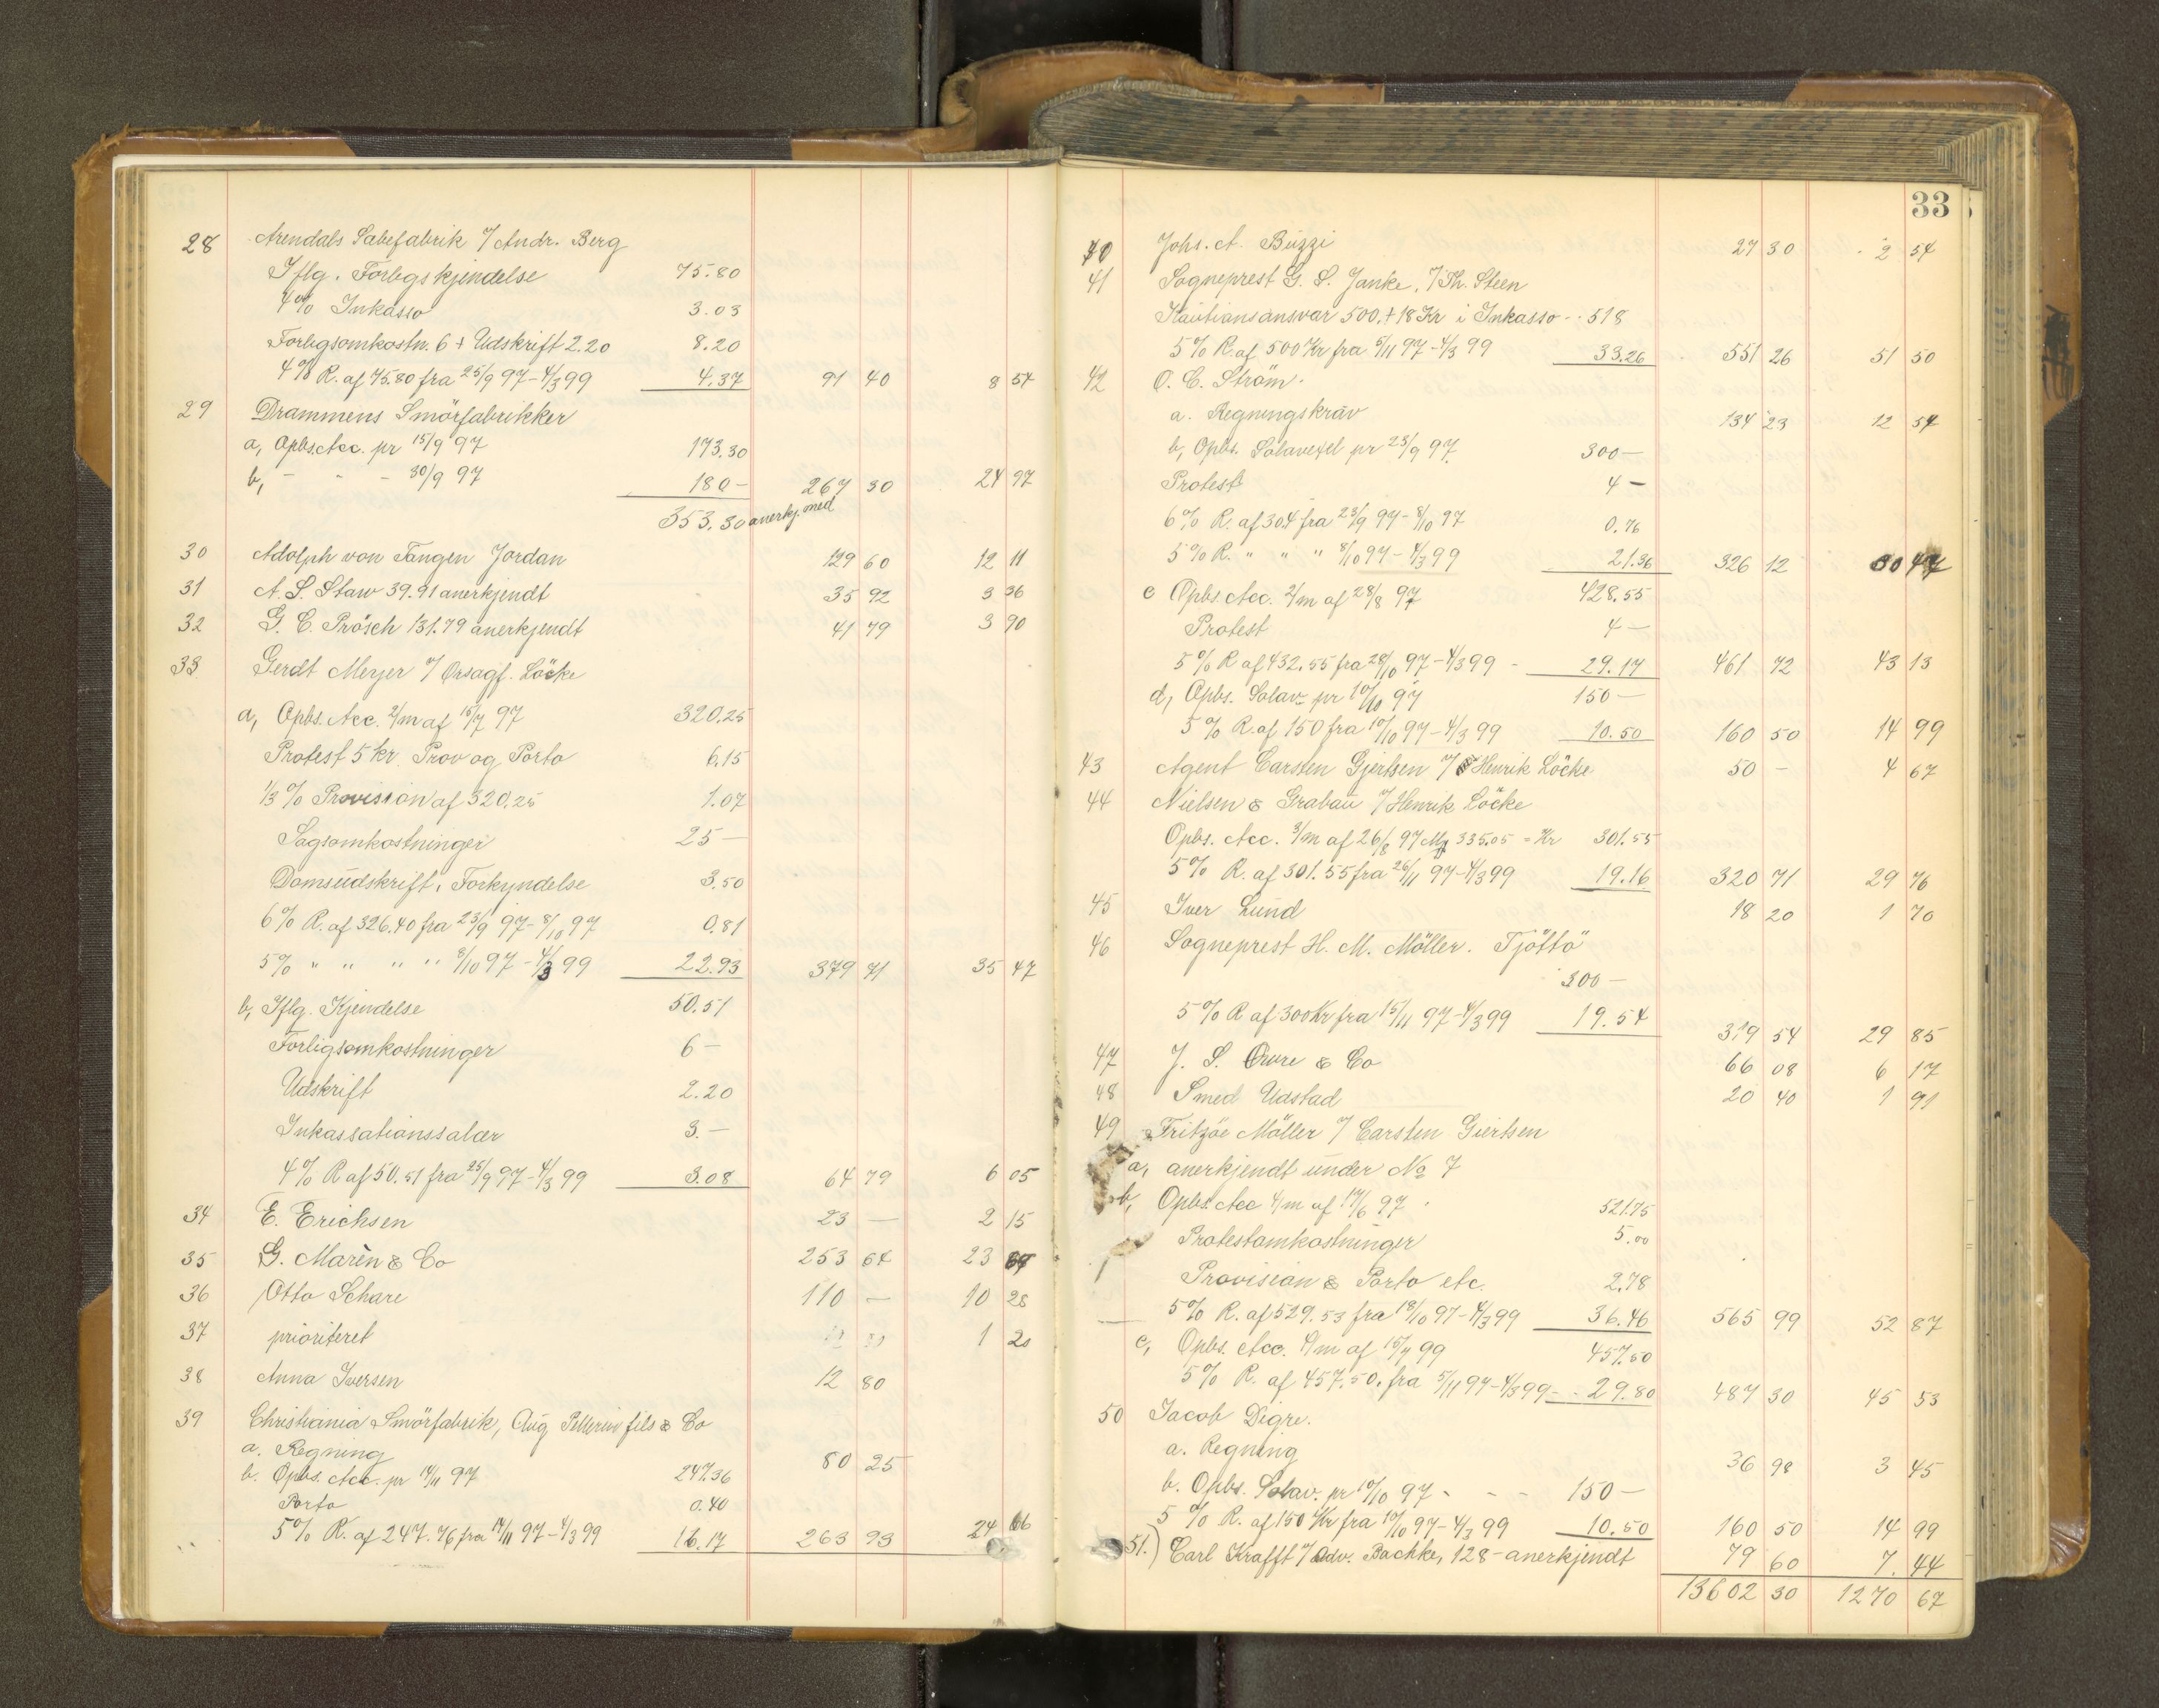 28 Arendals Sæbefabrik %Andr. Berg
Iflg. Forligskjendelse 75.80
4% Inkasso 3.03
Forligsomkostn. 6 + Udskrift 2.20 8.20
4% R. af 75.80 fra 25/9 97-4/3 99 4.37 91 40 8 54
29 Drammens Smörfabrikker
a, Opbs. Acc. pr 15/9 97 173.30
b, - - - 30/9 97 180- 267 30 24 97
353.30 anerkj. med
30 Adolph von Tangen Jordan 129 60 12 11
31 A. S. Staw 39.91 anerkjendt 35 92 3 36
32 G. C. Prösch 131.79 anerkjendt 41 79 3 90
33 Gerdt Meyer % Orsagf. Löcke
a, Opbs. Acc. 2/m af 15/7 97 320.25
Protest 5 kr. Prov og Porto 6.15
1/3 % Provision af 320.25 1.07
Sagsomkostninger 25-
Domsudskrift, Forkyndelse 3.50
6% R. af 326.40 fra 23/9 97-8/10 97 0.81
5% " " " " 8/10 97-4/3 99 22.93 379 71 35 47
b, Iflg. Kjendelse 50.51
Forligsomkostninger 6-
Udskrift 2.20
Inkassationssalær 3.-
4% R af 50.51 fra 25/9 97-4/3 99 3.08 64 79 6 05
34 E. Erichsen 23 - 2 15
35 G. Marèn & Co 253 64 23
36 Otto Schare 110 - 10 28
37 prioriteret 1 20
38 Anna Iversen 12 80
39 Christiania Smörfabrik, Aug Pellerin fils & Co
a. Regning 80 25
b. Opbs. Acc. pr 14/11 97 247.36
Porto 0.40
5% R. af 247.76 fra 14/11 97-4/3 99 16.17 263 93 24 66
33
40 Johs. A. Buzzi 27 30 2 54
41 Sogneprest G. S. Janke, % Th. Steen
Kautionsansvar 500.+18 Kr i Inkasso - - 518
5% R. af 500 Kr fra 5/11 97-4/3 99 33.26 551 26 51 50
42 O. C. Ström.
a. Regningskrav 134 23 12 54
b, Opbs. Solavexel pr 23/9 97 300-
Protest 4-
6% R. af 304 fra 23/9 97-8/10 97 0.76
5% R. " " " 8/10 97-4/3 99 21.36 326 12 30 47
c Opbs. Acc. 2/m af 28/8 97 428.55
Protest 4-
5% R af 432.55 fra 28/10 97-4/3 99 - 29.17 461 72 43 13
d, Opbs. Solav. pr 10/10 97 150-
5% R. af 150 fra 10/10 97-4/3 99 10.50 160 50 14 99
43 Agent Carsten Gjertsen % Henrik Löcke 50 - 4 67
44 Nielsen & Grabau % Henrik Löcke
Opbs. Acc. 3/m af 26/8 97 Mk 335.05 = Kr 301.55
5% R. af 301.55 fra 26/11 97-4/3 99 19.16 320 71 29 76
45 Iver Lund 18 20 1 70
46 Sogneprest H. M. Möller. Tjöttö
300-
5% R af 300 Kr fra 15/11 97-4/3 99 19.54 319 54 29 85
47 J. S. Owre & Co 66 08 6 17
48 Smed Udstad 20 40 1 91
49 Fritzöe Möller % Carsten Giertsen
a, anerkjendt under No 7
b, Opbs. Acc 4/m af 17/6 97 521.75
Protestomkostninger 5.00
Provision & Porto etc. 2.78
5% R. af 529.53 fra 18/10 97-4/3 99 36.46 565 99 52 87
c, Opbs. Acc. 4/m af 15/7 99 457.50
5% R. af 457.50. fra 5/11 97-4/3 99 - - 29.80 487 30 45 53
50 Jacob Digre.
a. Regning 36 98 3 45
b. Opbs. Solav. pr 10/10 97 - - - 150-
5 % R. af 150 Kr fra 10/10 97-4/3 99 10.50 160 50 14 99
51.) Carl Krafft % Adv. Bachke, 128-anerkjendt 79 60 7. 44
13602 30 1270 67